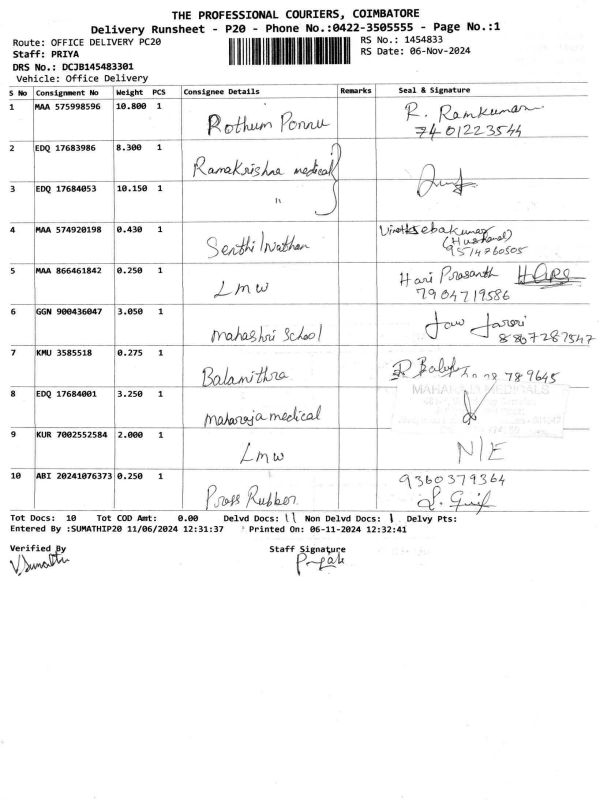 THE PROFESSIONAL COURIERS, COIMBATORE
Delivery Runsheet - P20 - Phone No.:0422-3505555 - Page No.:1
Route: OFFICE DELIVERY PC20 RS No.: 1454833
Staff: PRIYA RS Date: 06-Nov-2024
DRS No.: DCJB145483301
Vehicle: Office Delivery
S No Consignment No Weight PCS Consignee Details Remarks Seal & Signature
1 MAA 575998596 10.800 1 Rothum Ponnu R. Ramkumar
7401223544
2 EDQ 17683986 8.300 1 Ramakrishna medical
3 EDQ 17684053 10.150 1 "
4 MAA 574920198 0.430 1 Senthilnathan
(Husband)
9514260505
5 MAA 866461842 0.250 1 LMW Hari Prasanth
7904719586
6 GGN 900436047 3.050 1 Mahashri School
8807287547
7 KMU 3585518 0.275 1 Balamithra 789645
8 EDQ 17684001 3.250 1 Maharaja medical MAHARAJA MEDICALS
9 KUR 7002552584 2.000 1 LMW N/E
10 ABI 20241076373 0.250 1 Press Rubber 9360379364
Tot Docs: 10 Tot COD Amt: 0.00 Delvd Docs: 11 Non Delvd Docs: 1 Delvy Pts:
Entered By :SUMATHIP20 11/06/2024 12:31:37 Printed On: 06-11-2024 12:32:41
Verified By Staff Signature
V.Sumathi